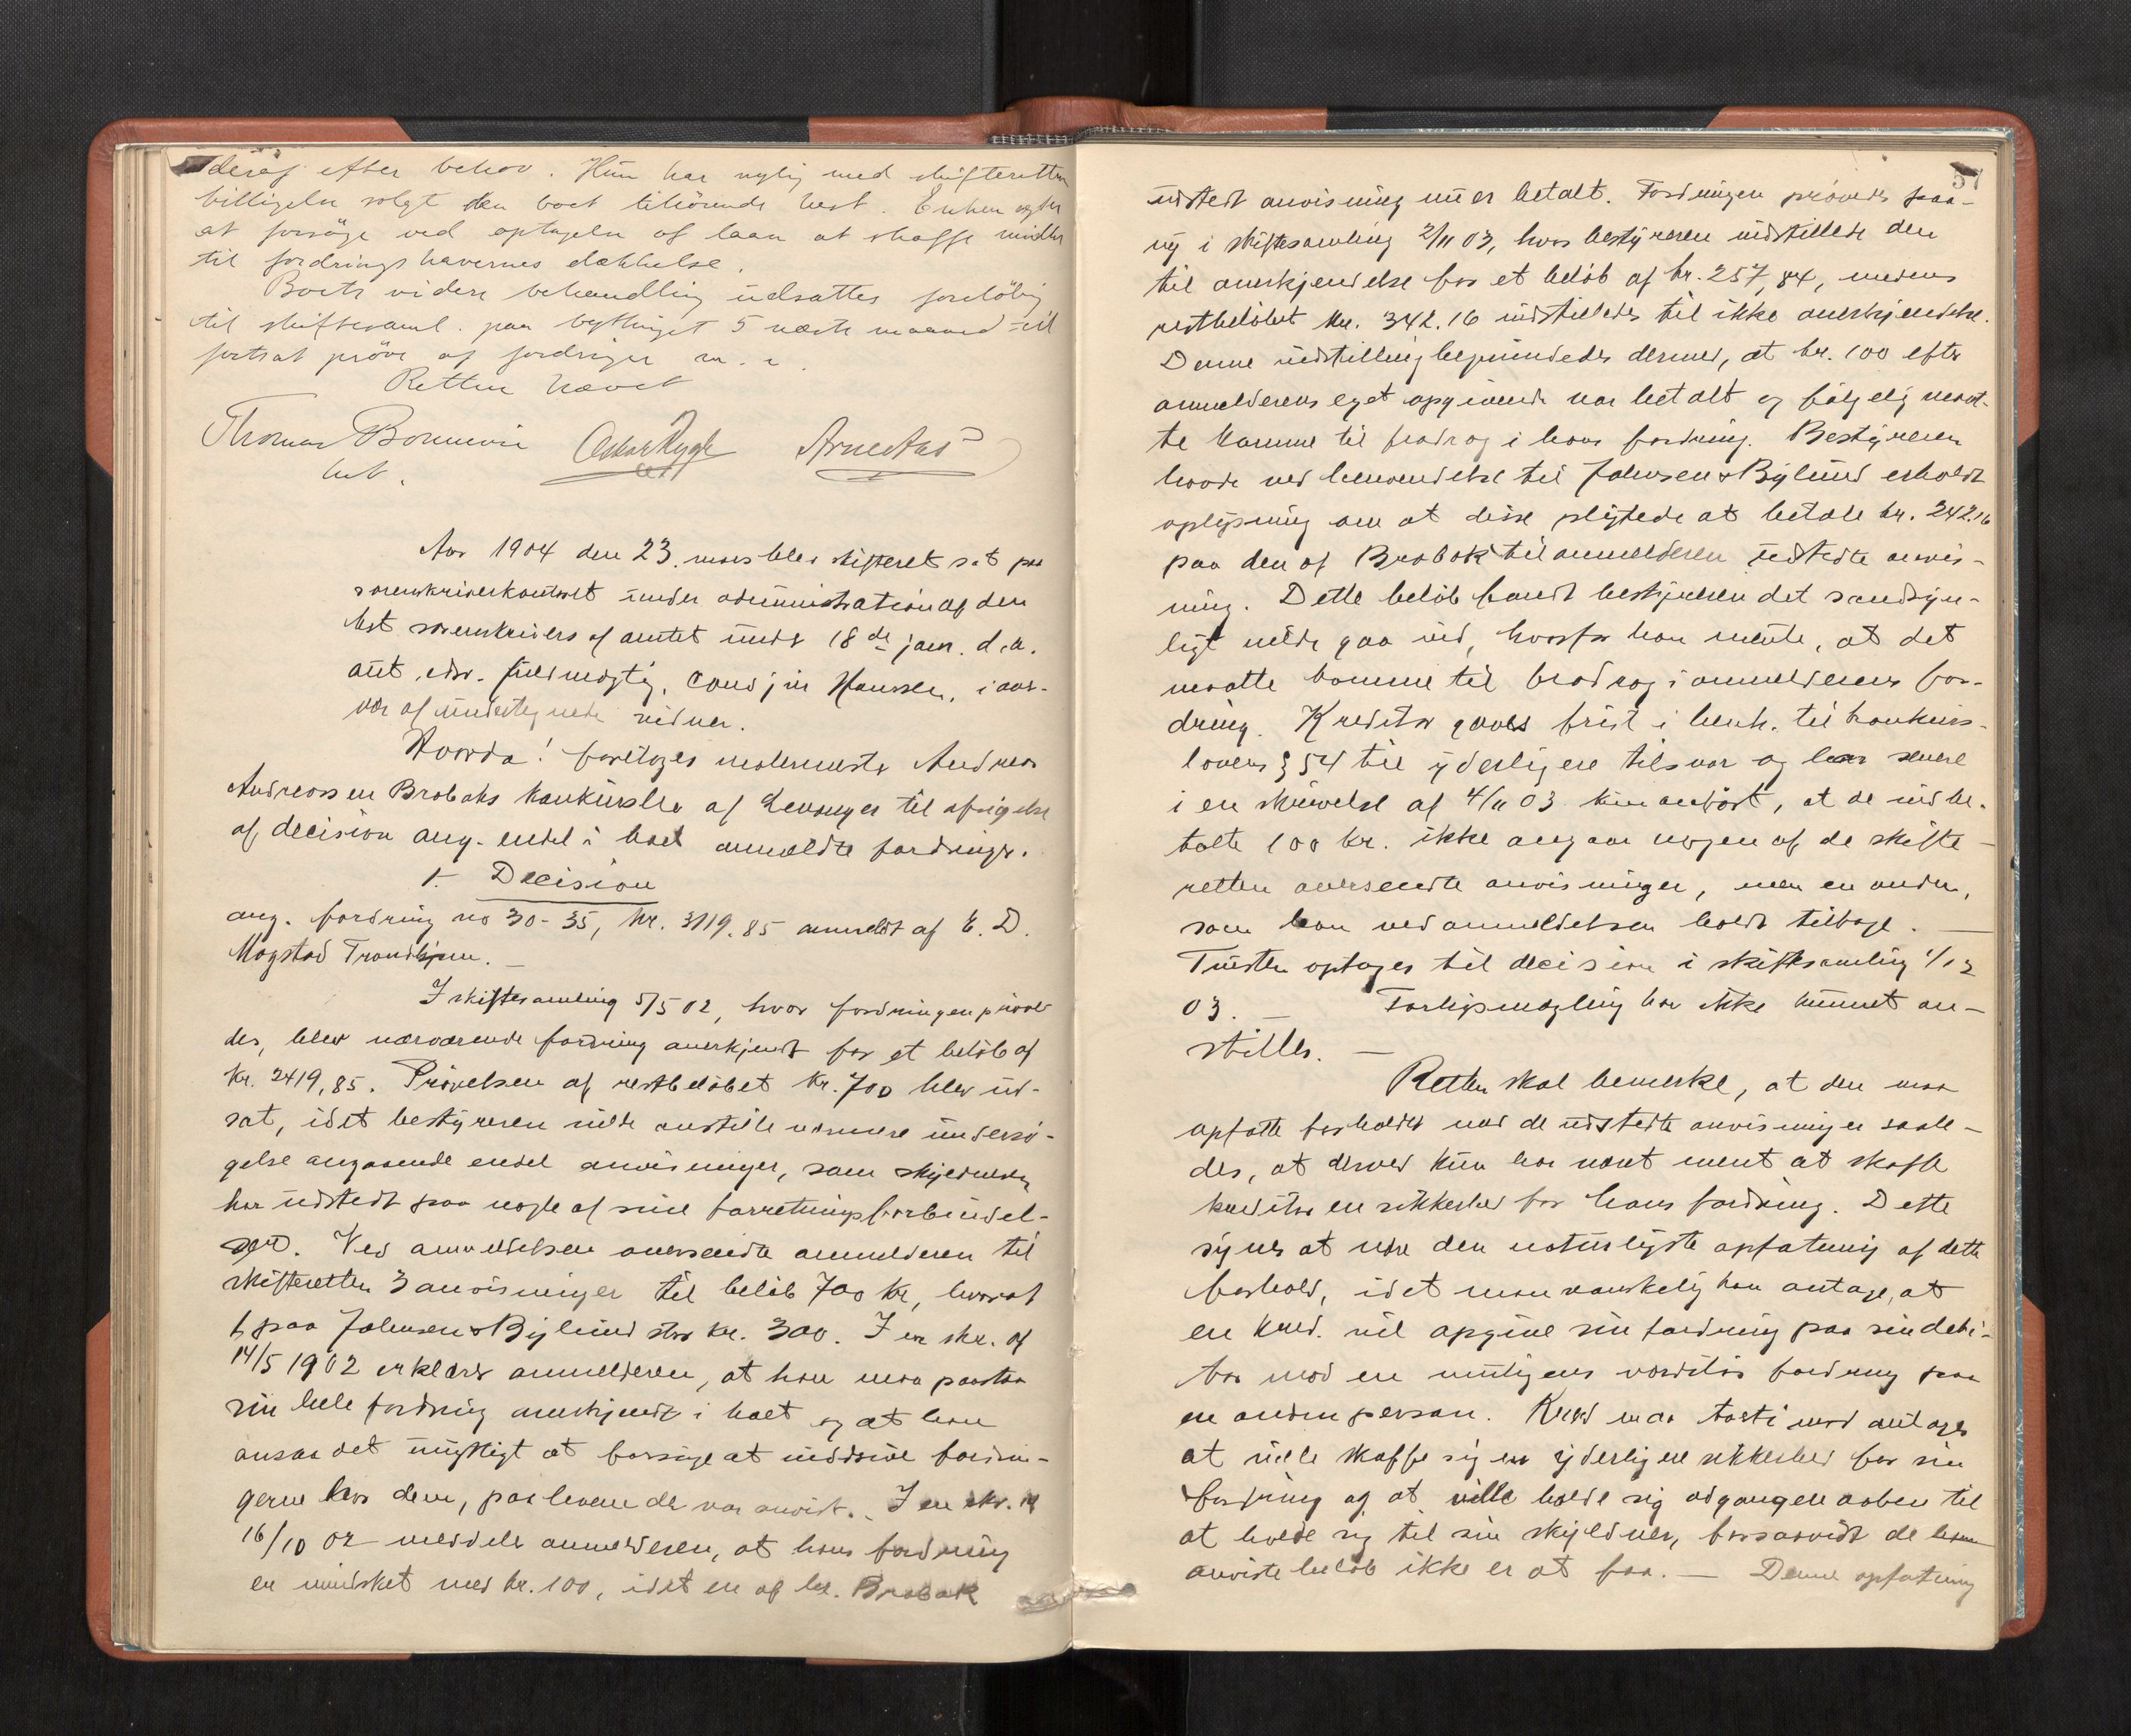 deraf efter behov. Hun har nylig med skifteretten
billigelse solgt den boet tilhörende hest. Enken agter
at forsöge ved optagelse af laan at skaffe midler
til fordringshavernes dækkelse.
Boets videre behandling udsattes foreløbig
til skiftesaml. paa bythinget 5 næste maaned til
fortsat pröve af fordringer m. v.
Retten hævet
Thomas Bonnevie Oskar Rygh Arne Aas
const.
Aar 1904 den 23. mars blev skifteret sat paa
sorenskriverkontoret under administration af den
best. sorenskrivers af amtet under 18de jan. d. a.
aut. edsv. fuldmægtig, Hanssen, i nær-
vær af undertegnede vidner.
Hvorda! foretoges malermester Andreas
Andreassen Brobaks konkursbo af Levanger til afsigelse
af decision ang. endel i boet anmeldte fordringer.
1. Decision
ang. fordring no 30-35, kr. 3119.85 anmeldt af E. D.
Mogstad Trondhjem. —
I skiftesamling 5/5 02, hvor fordringen pröve-
des, blev nærværende fordring anerkjendt for et belöb af
kr. 2419,85. Prövelsen af restbelöbet kr. 700 blev ud-
sat, idet bestyreren vilde anstille nærmere undersö-
gelse angaaende endel anvisninger, som skyldneren
har udstedt paa nogle af sine forretningsforbindel-
ser. Ved anmeldelsen oversendte anmelderen til
skifteretten 3 anvisninger til belöb 700 kr, hvoraf
1 paa Johnsen & Bylund stor kr. 300. I en skr. af
14/5 1902 erklærer anmelderen, at han maa paastaa
sin hele fordring anerkjendt i boet og at han
ansaa det unyttigt at forsöge at inddrive fordrin-
gerne hos dem, paa hvem der var anvist. I en skr. af
16/10 02 meddeler anmelderen, at hans fordring
er mindsket med kr. 100, idet en af hr. Brobak
57
udstedt anvisning nu er betalt. Fordringen prövedes paa-
ny i skiftesamling 2/11 03, hvor bestyreren indstillede den
til anerkjendelse for et belöb af kr. 257,84, medens
restbelöbet kr. 342.16 indstilledes til ikke anerkjendelse.
Denne indstilling begrundedes dermed, at kr. 100 efter
anmelderens eget opgivende var betalt og fölgelig maat-
te komme til fradrag i hans fordring. Bestyreren
havde ved henvendelse til Johnsen & Bylund erholdt
oplysning om at disse pligtede at betale kr. 242.16
paa den af Brobak til anmelderen udstedte anvis-
ning. Dette belöb fandt bestyreren det sandsyn-
ligt vilde gaa ind, hvorfor han mente, at det
maatte komme til fradrag i anmelderens for-
dring. Kreditor gaves frist i henh. til konkurs-
lovens § 54 til yderligere tilsvar og har senere
i en skrivelse af 4/11 03 kun anfört, at de indbe-
talte 100 kr. ikke angaar nogen af de skifte-
retten oversendte anvisninger, men en anden,
som han ved anmeldelsen holdt tilbage. —
Tvisten optoges til decision i skiftesamling 1/12
03. — Forligsmægling har ikke kunnet an-
stilles. —
Retten skal bemerke, at den maa
opfatte forholdet med de udstedte anvisninger saale-
des, at derved kun har været ment at skaffe
kreditor en sikkerhed for hans fordring. Dette
synes at være den naturligste opfatning af dette
forhold, idet man vanskelig kan antage, at
en kred. vil opgive sin fordring paa sin debi-
tor mod en muligens værdilös fordring paa
en anden person. Kred maa tvertimod antages
at ville skaffe sig en yderligere sikkerhed for sin
fordring og at ville holde sig adgangen aaben til
at holde sig til sin skyldner, forsaavidt de ham
anviste belöb ikke er at faa. — Denne opfatning